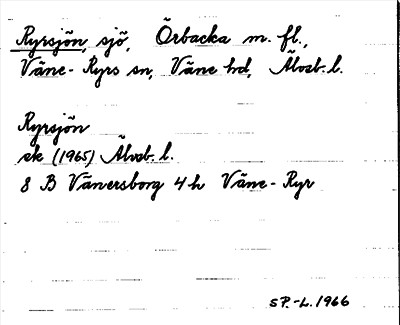 Ryrsjön, sjö, Örbacka m. fl.,
Väne-Ryrs sn, Väne hd, Älvsb. l.
Ryrsjön
ek (1965) Älvsb. l.
8 B Vänersborg 4 h Väne-Ryr
SP.-L. 1966